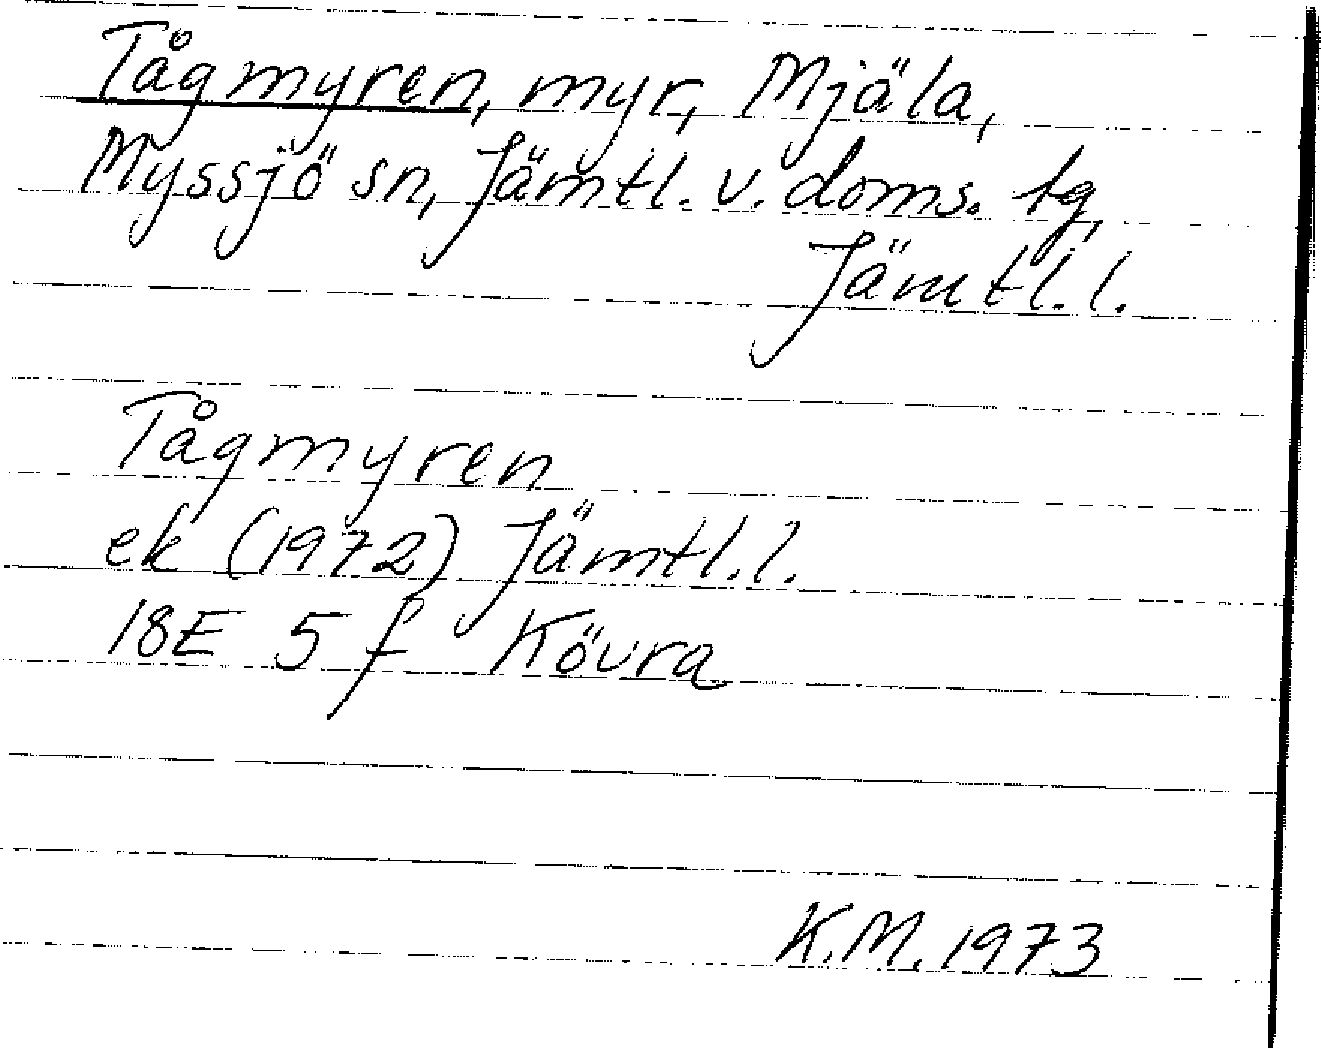 Tågmyren, myr, Mjäla,
Myssjö sn, Jämtl. v. doms. tg,
Jämtl. l.
Tågmyren
ek (1972) Jämtl. l.
18E 5 f Kövra
K.M. 1973